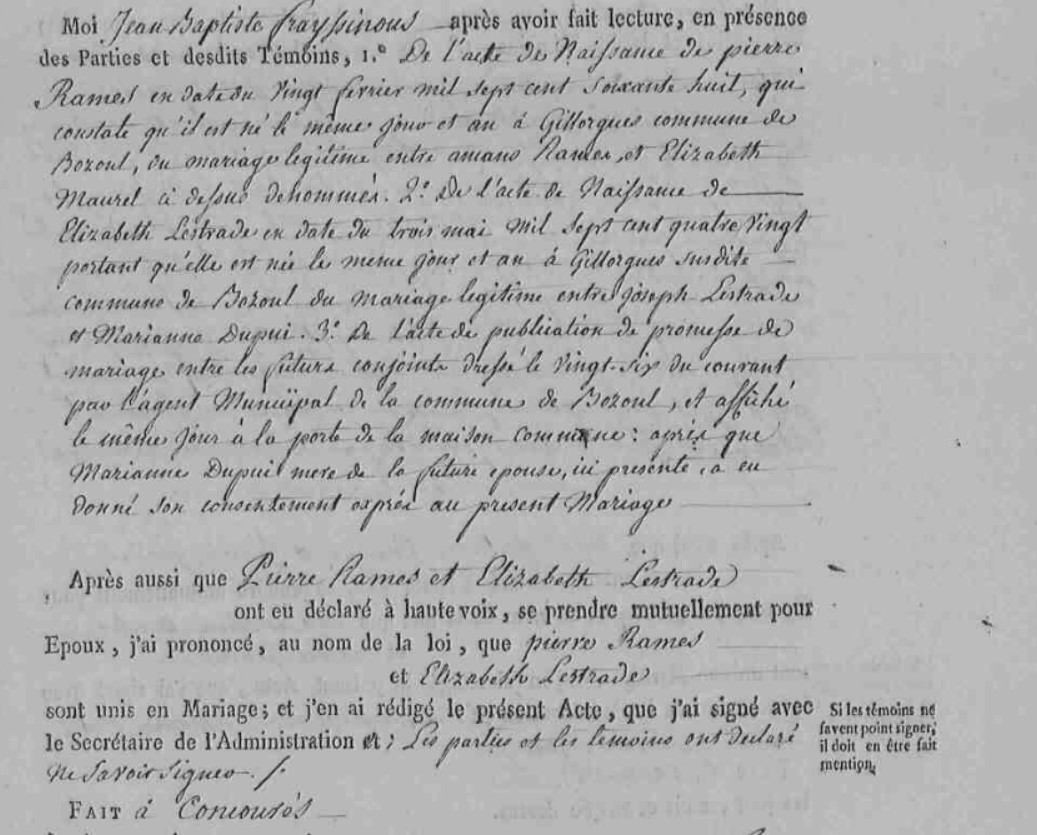 Moi Jean Baptiste Frayssinous après avoir fait lecture, en présence
des Parties et desdits Témoins, 1.° De l'acte de Naissance de pierre
Rames en date du vingt fevrier mil sept cent soixante huit, qui
constate qu'il est né le même jour et an à Gillorgues commune de
Bozoul, du mariage legitime entre amans Rames, et Elizabeth
Maurel ci dessus denommés. 2.° De l'acte de Naissance de
Elizabeth Lestrade en date du trois mai mil sept cent quatre vingt
portant qu'elle est née le meme jour et an à Gillorgues susdite
commune de Bozoul du mariage legitime entre joseph Lestrade
et Marianne Dupui. 3.° De l'acte de publication de promesse de
mariage entre les futurs conjoints dressé le vingt-six du courant
par l'agent Municipal de la commune de Bozoul, et affiché
le même jour à la porte de la maison commune : après que
Marianne Dupui mere de la future epouse, ici presente, a eu
donné son consentement exprès au present Mariage
Après aussi que Pierre Rames et Elizabeth Lestrade
ont eu déclaré à haute voix, se prendre mutuellement pour
Epoux, j'ai prononcé, au nom de la loi, que pierre Rames
et Elizabeth Lestrade
sont unis en Mariage; et j'en ai rédigé le présent Acte, que j'ai signé avec
le Secrétaire de l'Administration et; Les parties et les temoins ont declaré
ne savoir signer./.
Si les témoins ne
savent point signer,
il doit en être fait
mention.
FAIT à Concourès